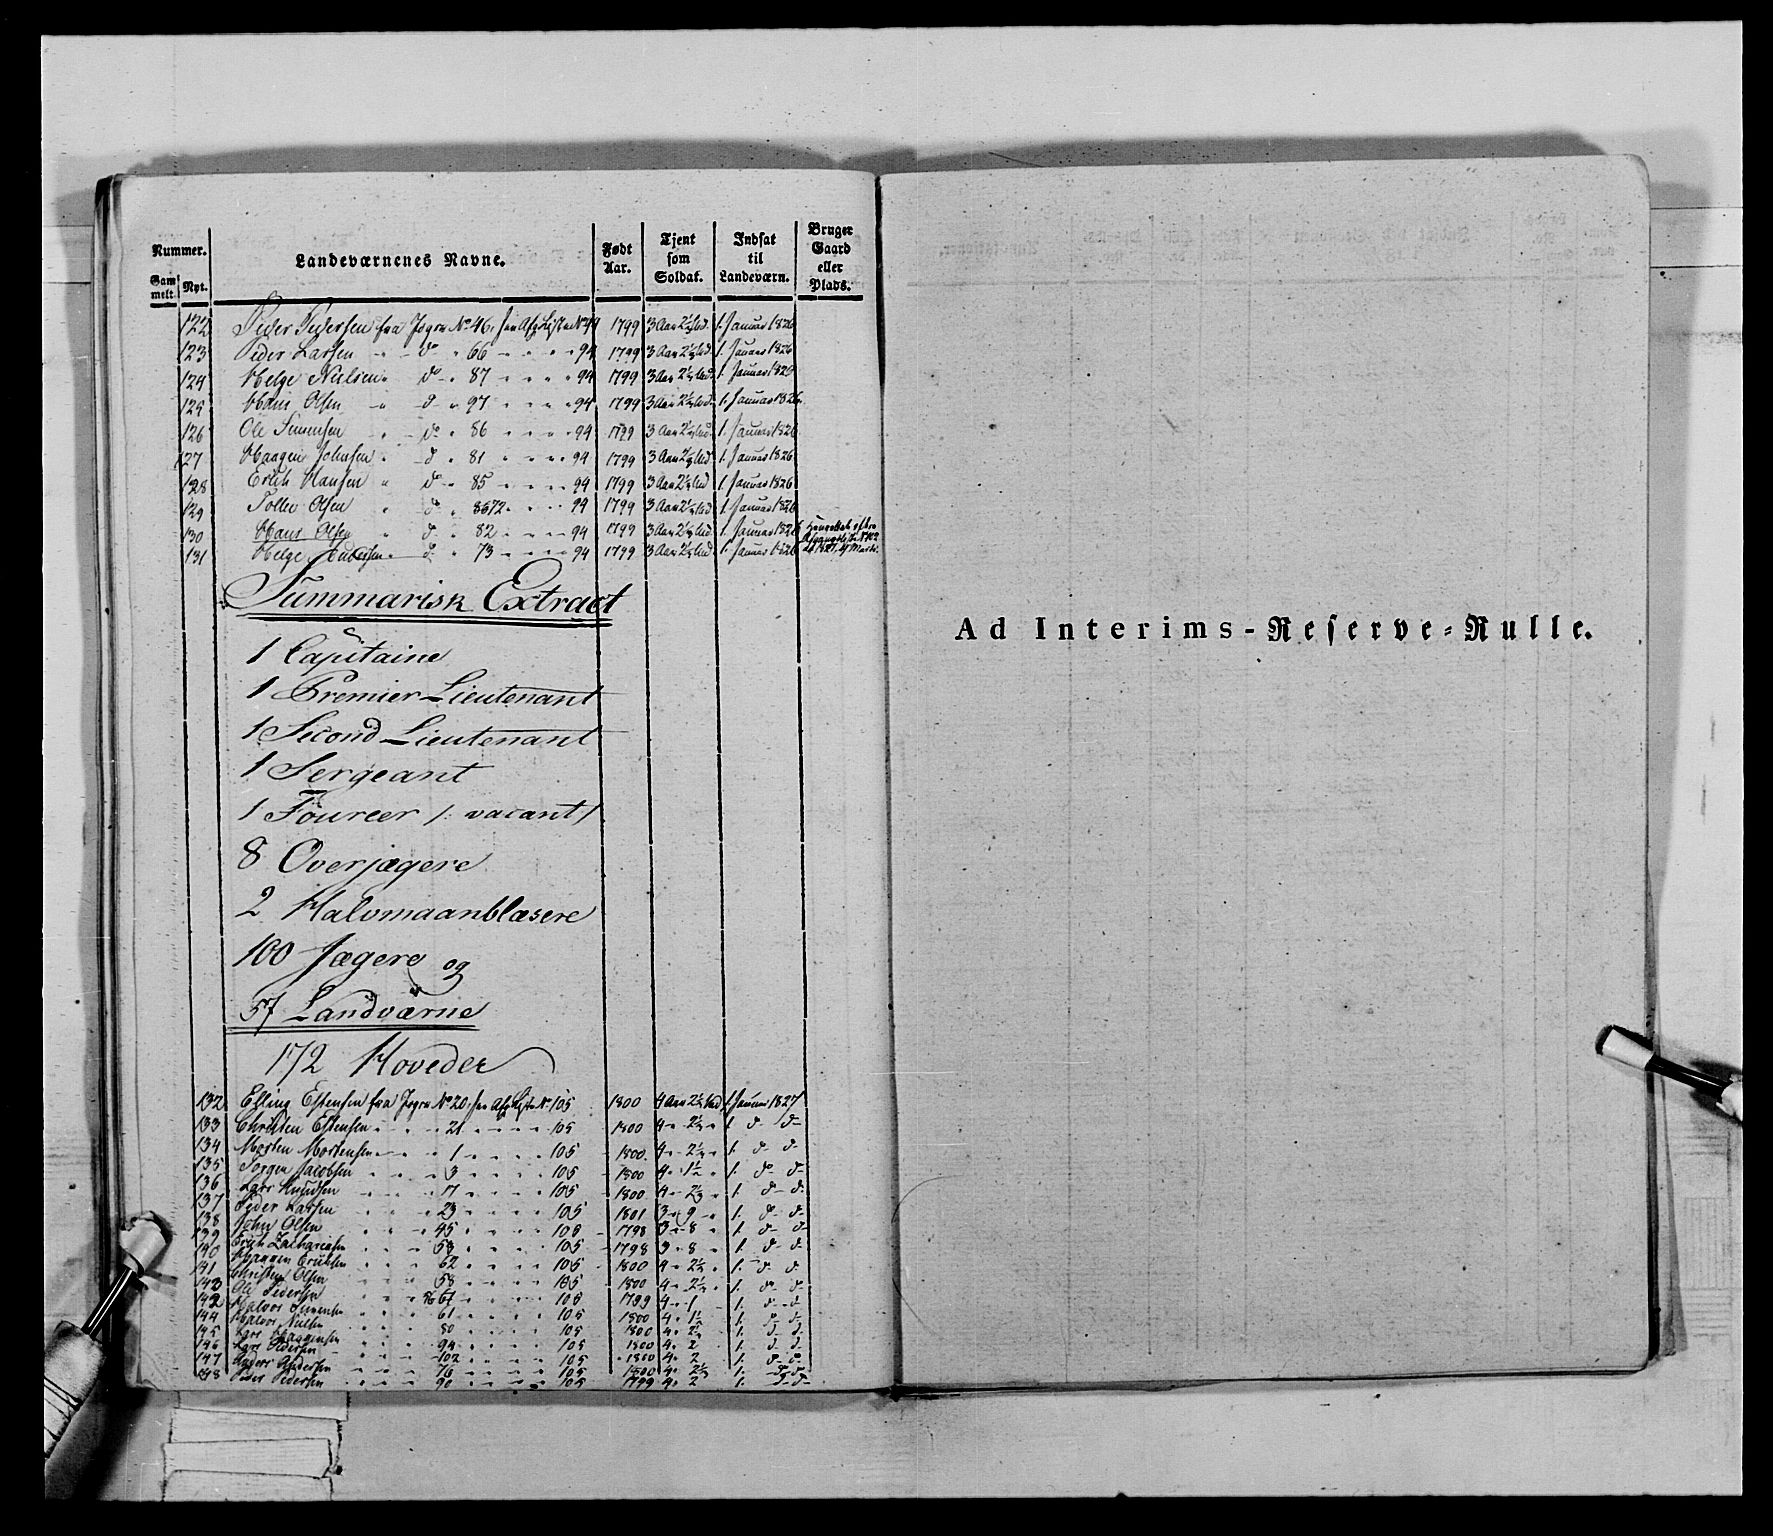 Nummer.
Gammelt
Nyt.
Landeværnenes Navne.
Født Aar.
Tjent som Soldat.
Indsat til Landeværn.
Bruger Gaard eller Plads.
122 Peder Pedersen fra Jøgru No 46. 1799 3 Aar 1. Januar 1826
123 Peder Larsen " do " 66 " " " 94 1799 3 Aar 1. Januar 1826
124 Helge Nielsen " do " 87 " " " 94 1799 3 Aar 1. Januar 1826
125 Hans Olsen " d " 97 " " " 94 1799 3 Aar 1. Januar 1826
126 Ole Simensen " do " 86 " " " 94 1799 3 Aar 1. Januar 1826
127 Haagen Johnsen " d " 81 " " " 94 1799 3 Aar 1. Januar 1826
128 Erich Hansen " do " 85 " " " 94 1799 3 Aar 1. Januar 1826
129 Tollev Olsen " d " 72 " " " 94 1799 3 Aar 1. Januar 1826
130 Hans Olsen " d " 82 " " " 94 1799 3 Aar 1. Januar 1826
131 Helge " d " 73 " " " 94 1799 3 Aar 1. Januar 1826
Summarisk Extract
1 Capitaine
1 Premier-Lieutenant
1 Second-Lieutenant
1 Sergeant
1 Foureer /: vacant /
8 Overjægere
2 Halvmaanblæsere
100 Jægere og
57 Landværne
172 Hoveder
132 Elling Estensen fra No 20 105 1800 4 Aar 1 Januar 1827
133 Christen Estensen " " 21 " " " 105 1800 4 " 2½ " 1 d d
134 Morten Mortensen " " 1 " " " 105 1800 4 " 2½ " 1. d d
135 Jørgen Jacobsen " " 3 " " " 105 1800 4 " 1½ " 1. d d
136 Lars Knudsen " " 17 " " " 105 1800 4 " 2½ " 1. d d
137 Peder Larsen " " 23 " " " 105 1801 3 " 9 " 1. d d
138 John Olsen " " 45 " " " 105 1798 3 " 8 " 1. d d
139 Erich Zachariasen " " 105 1798 3 " 8 " 1. d d
140 Haagen Erichsen " " 62 " " " 105 1800 4 " 2½ " 1. d d
141 Christen Olsen " " 58 " " " 105 1800 4 " 2½ " 1. d d
Ole Pedersen " " 1799 4 " 1 1. d d
Halvor Simensen " " 61 " " " 105 1800 4 " 1½ 1. d d
144 Halvor Nielsen " " 80 " " " 105 1800 4 " 1. d d
145 Lars Haagensen " " 94 " " " 105 1800 4 " 2 1. d d
146 Lars Pedersen " " 102 " " " 105 1800 4 " 2 1. d d
147 Anders Andersen " " 76 " " " 105 1800 4 " 2½ 1. d d
148 Peder Pedersen " " 90 " " " 105 1799 4 " 2 1. d d
Ad Interims-Reserve-Rulle.